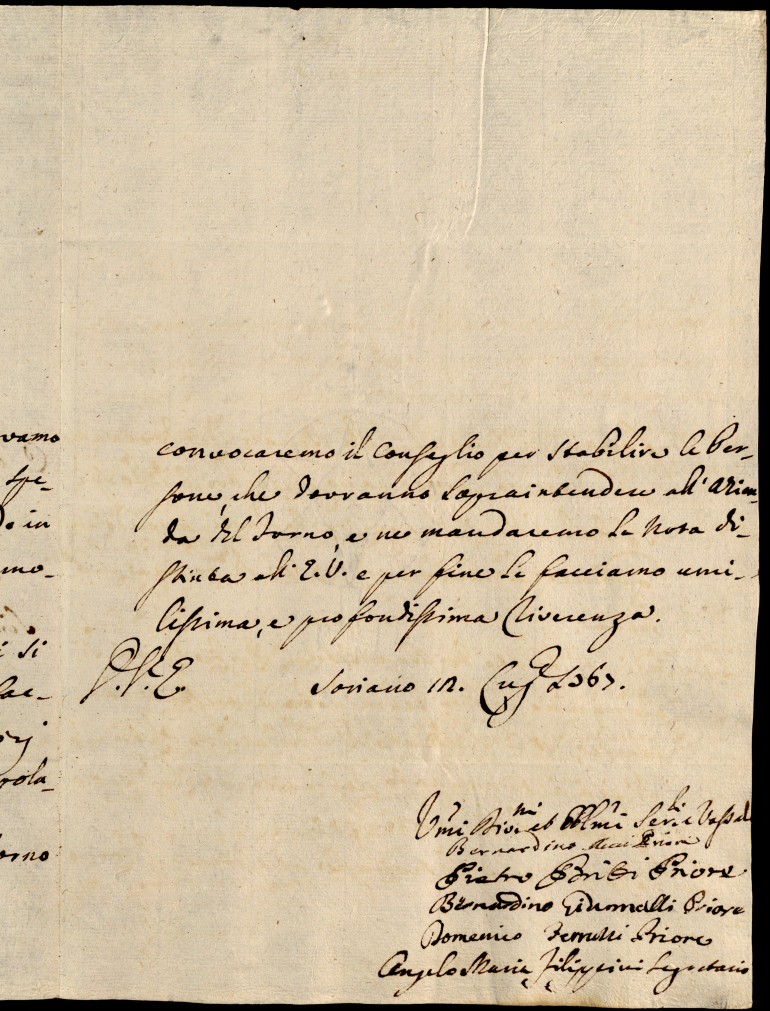 vamo
spe-
do in
mo-
i si
fac-
rola-
orno
convocaremo il Conseglio per stabilire le Per-
sone, che dovranno sopraintendere all' Azien-
da del Forno, e ne mandaremo la Nota di-
stinta all' E.V. e per fine le facciamo umi-
lissima, e profondissima riverenza.
D.V.E. Soriano 12. Lug.º 1767.
Umi Divmi et Obblmi Servi e Vassal
Bernardino Priore
Pietro Priore
Bernardino Priore
Domenico Ferruzzi Priore
Angelo Maria Filippini Segretario